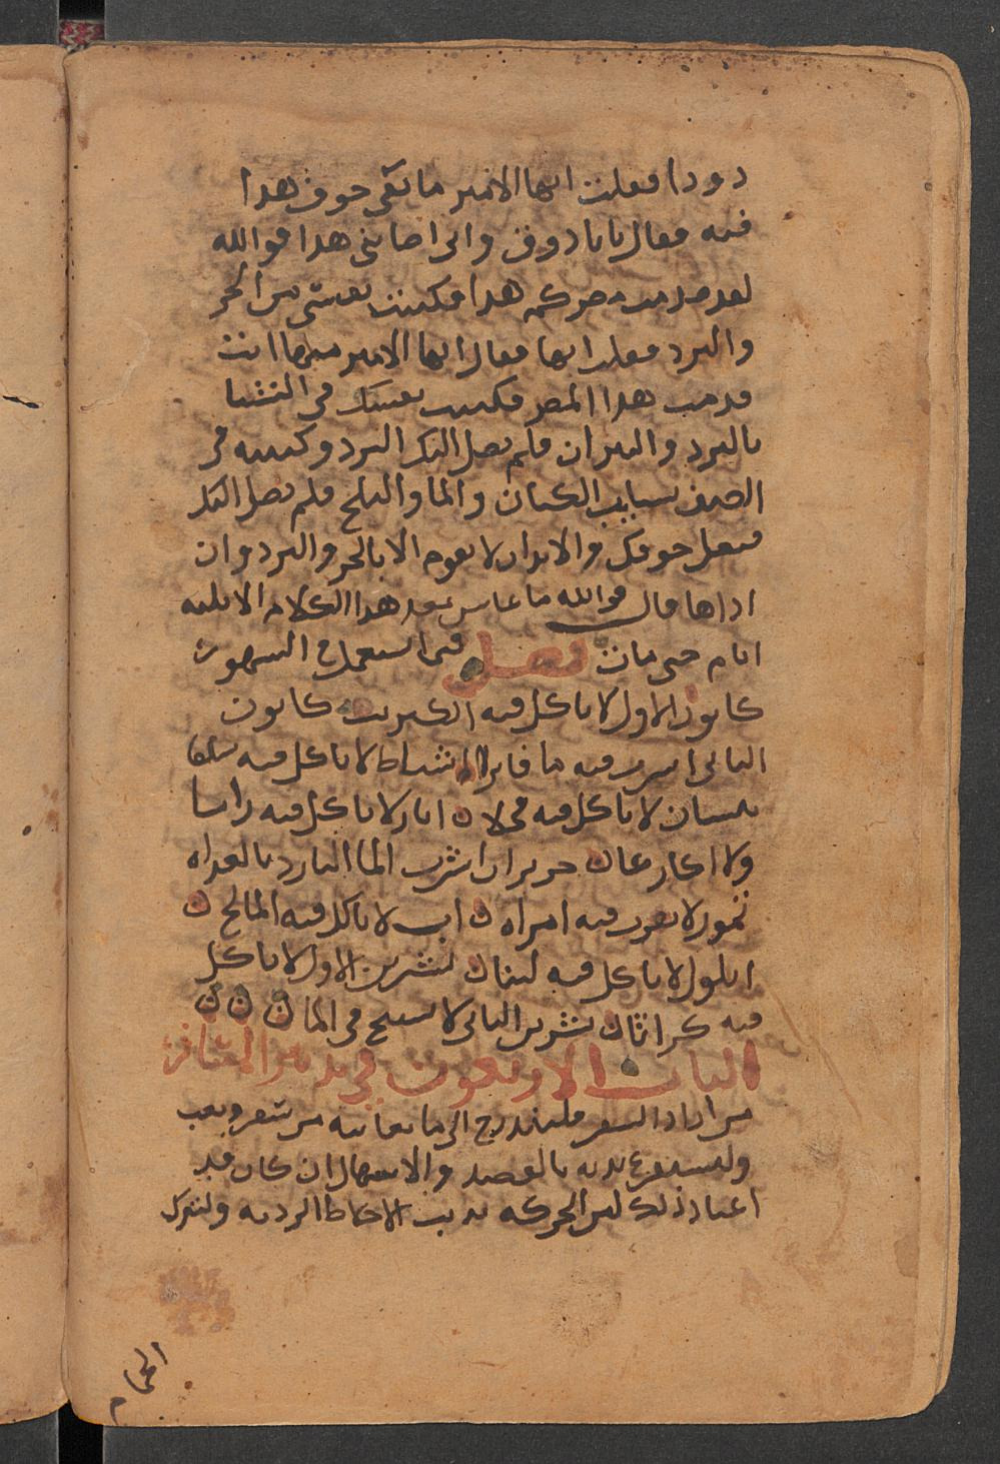 دودا فقلت ايها الامير ما بقى جوف هذا
فيه فقال يا تيادوق واني اصابني هذا فوالله
لقد قدمت مصركم هذا فكنت نفسي من الحر
والبرد فقلت ايها فقال ايها الامير منها انت
قدمت هذا المصر فكننت نفسك في الشتا
بالبرد والنيران فلم يصل اليك البرد وكننته في
الصيف بسبايب الكتان والما والثلج فلم يصل اليك
جوفك والابدان لا تقوم الا بالحر والبرد وان
اذاها قال فوالله ما عاش بعد هذا الكلام الا ثلثه
ايام حتى مات فصل في استعمال الشهور
كانون الاول لا تاكل فيه الكبريت كانون
الثاني اشرب فيه ما فاترا شباط لا تاكل فيه سلقا
نيسان لا تاكل فيه فجلا ايار لا تاكل فيه راسا
ولا اكارعا حزيران اشرب الما البارد بالغداه
تموز لا تقرب فيه امراه اب لا تاكل فيه المالح
ايلول لا تاكل فيه لبنا تشرين الاول لا تاكل
فيه كراثا تشرين الثاني لا تسبح في الما
الباب الاربعون في تدبير المسافر
من اراد السفر فليتدرج الى ما يعانيه من سفر وتعب
وليستفرغ بدنه بالفصد والاسهال ان كان قد
اعتاد ذلك ليس الحركه تذيب الاخلاط الرديه وليترك
الحمام